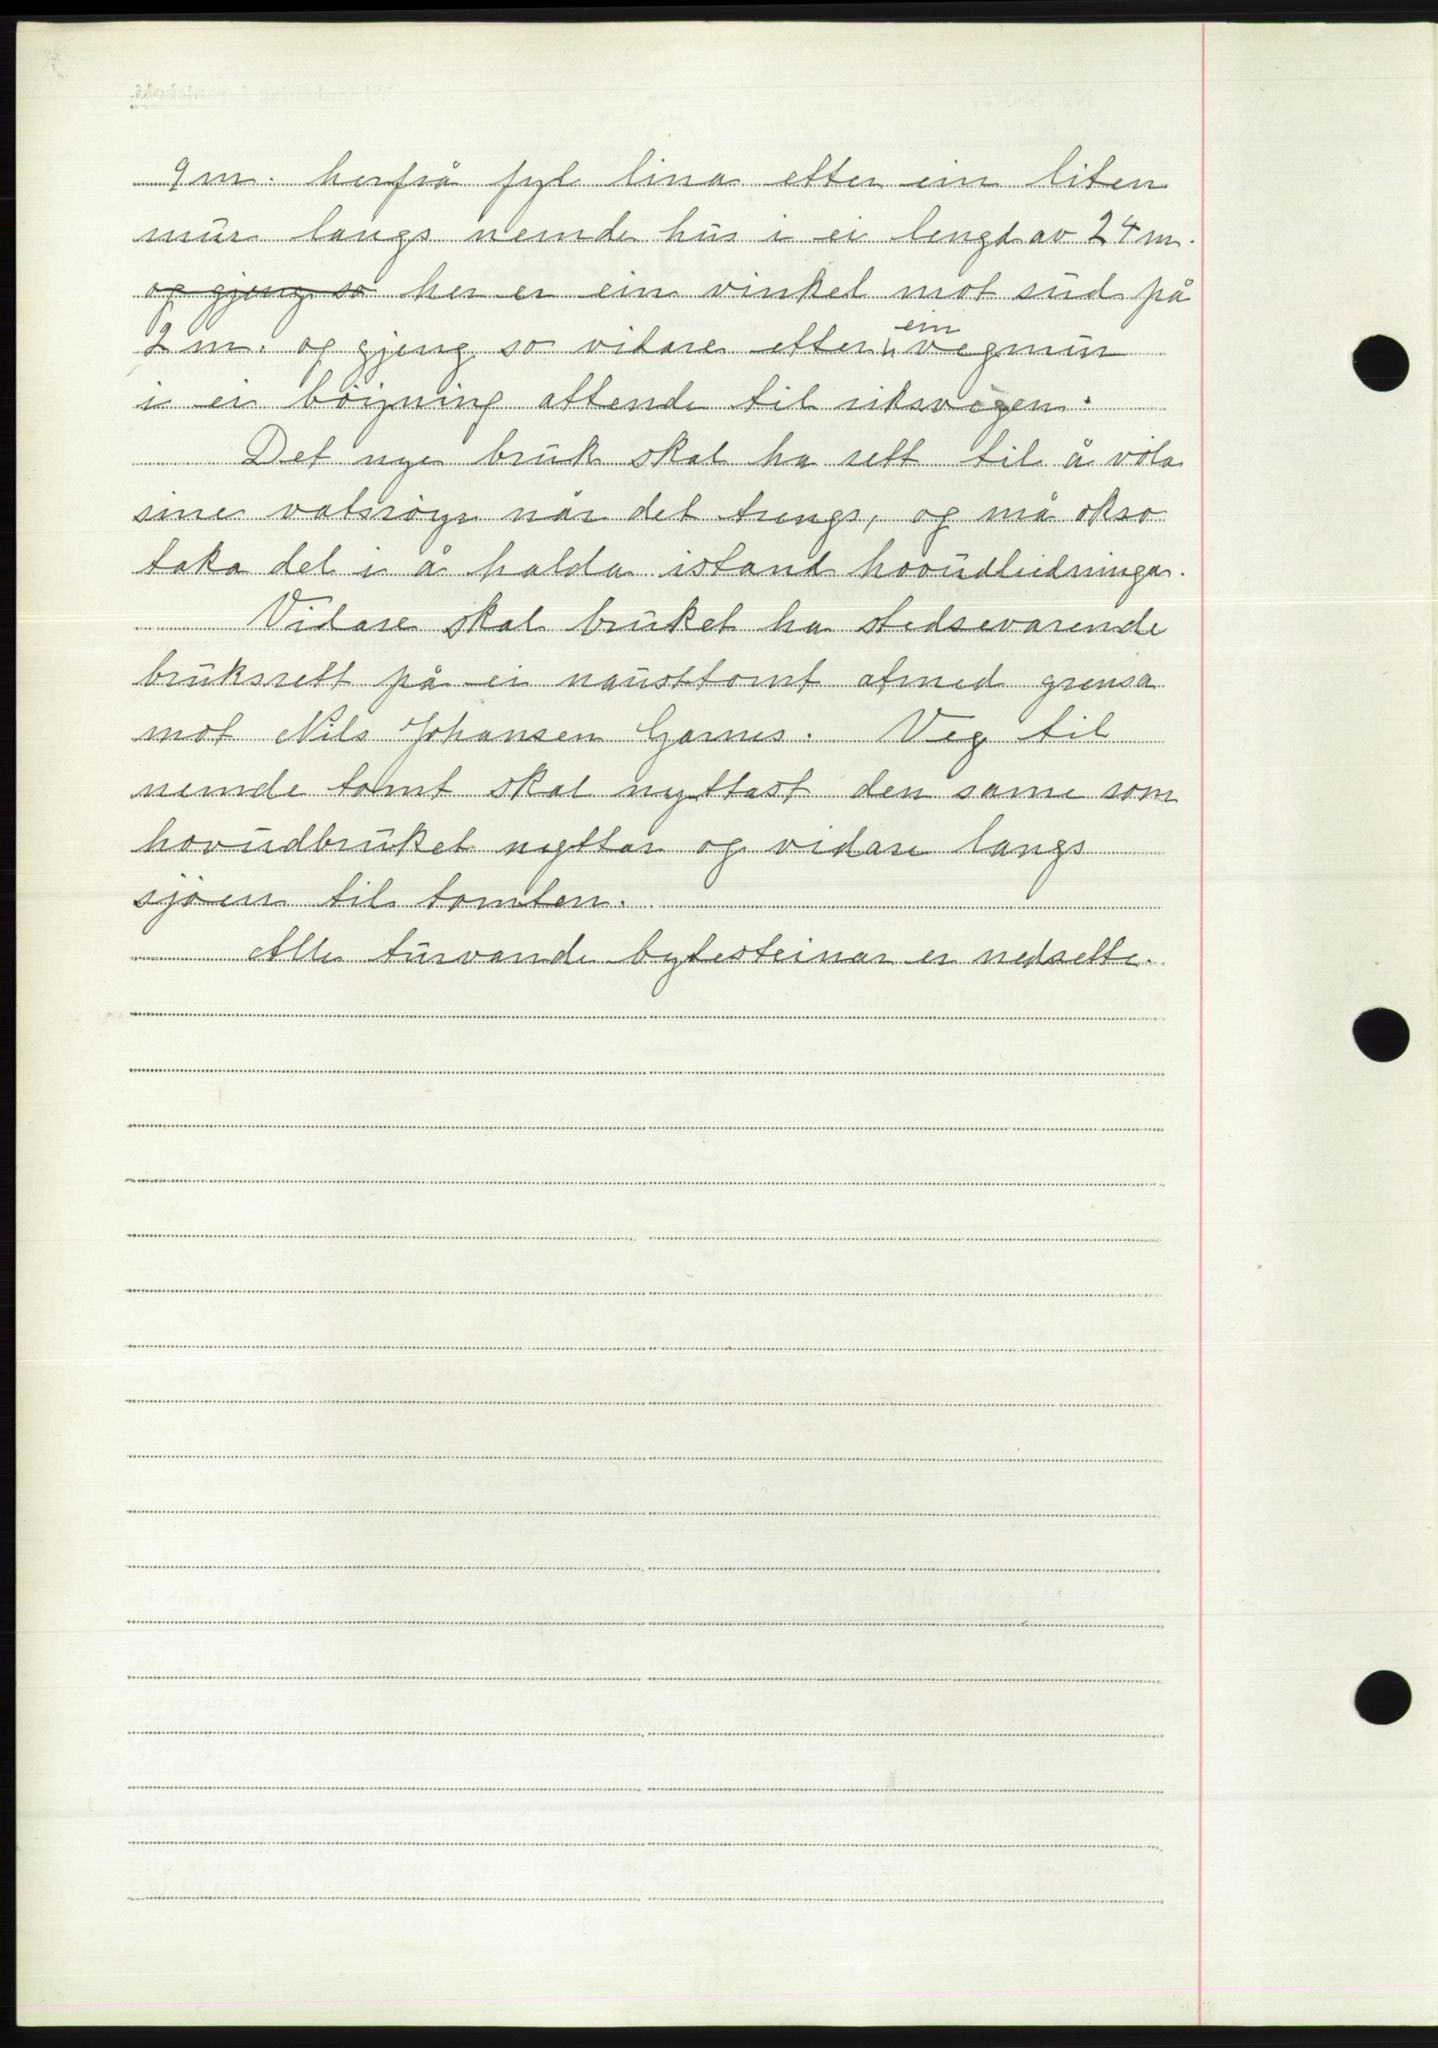 9 m. herfrå fyl lina etter ein liten
mur langs nemde hus i ei lengd av 24 m.
og gjeng so her er ein vinkel mot sud på
2 m. og gjeng so vidare etter ein vegmur
i ei böigning attende til riksvegen.
Det nye bruk skal ha rett til å völa
sine vatsröyr når det trengs, og må okso
taka del i å halda istand hovudleidninga.
Vidare skal bruket ha stedsevarende
bruksrett på ei nausttomt atmed grensa
mot Nils Johansen Garnes. Veg til
nemde tomt skal nyttast den same som
hovudbruket nyttar og vidare langs
sjøen til tomten.
Alle turvande bytesteinar er nedsette.